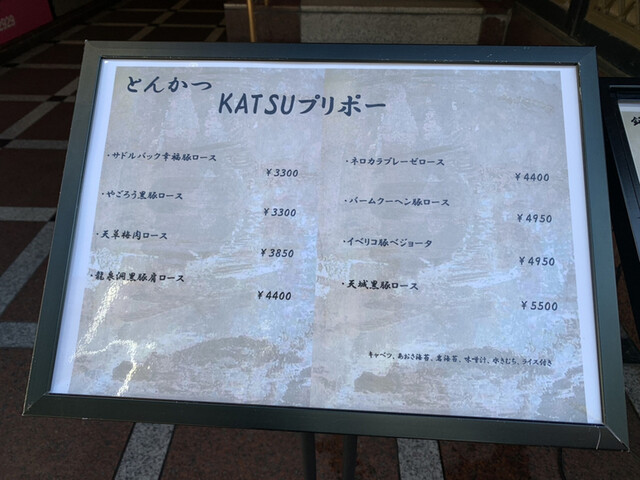 とんかつ
KATSUプリポー
・サドルバック幸福豚ロース
￥3300
・やごろう黒豚ロース
￥3300
・天草梅肉ロース
￥3850
・龍泉洞黒豚肩ロース
￥4400
・ネロカラブレーゼロース
￥4400
・バームクーヘン豚ロース
￥4950
・イベリコ豚ベジョータ
￥4950
・天城黒豚ロース
￥5500
キャベツ、あおさ海苔、岩海苔、味噌汁、水きむち、ライス付き